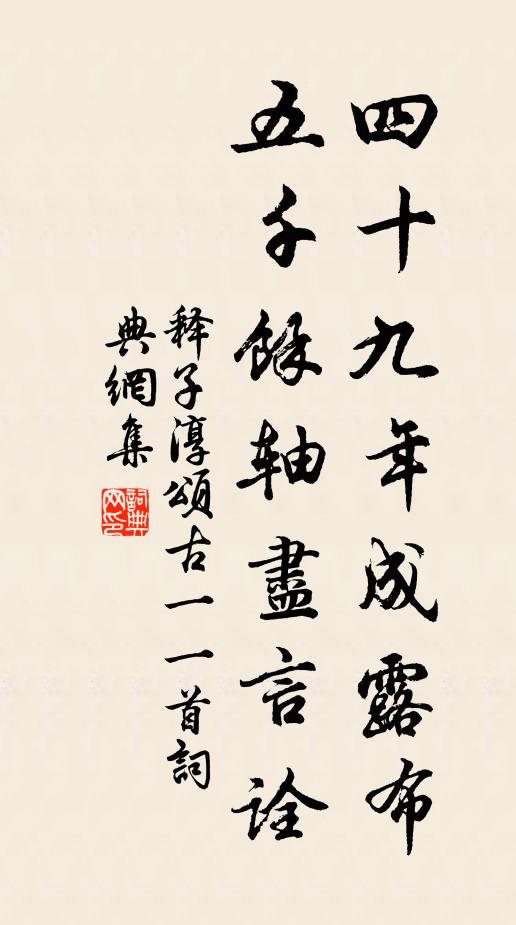 四十九年成露布
五千餘轴盡言詮
释子淳頌古一一首詞
典網集
詞典网印